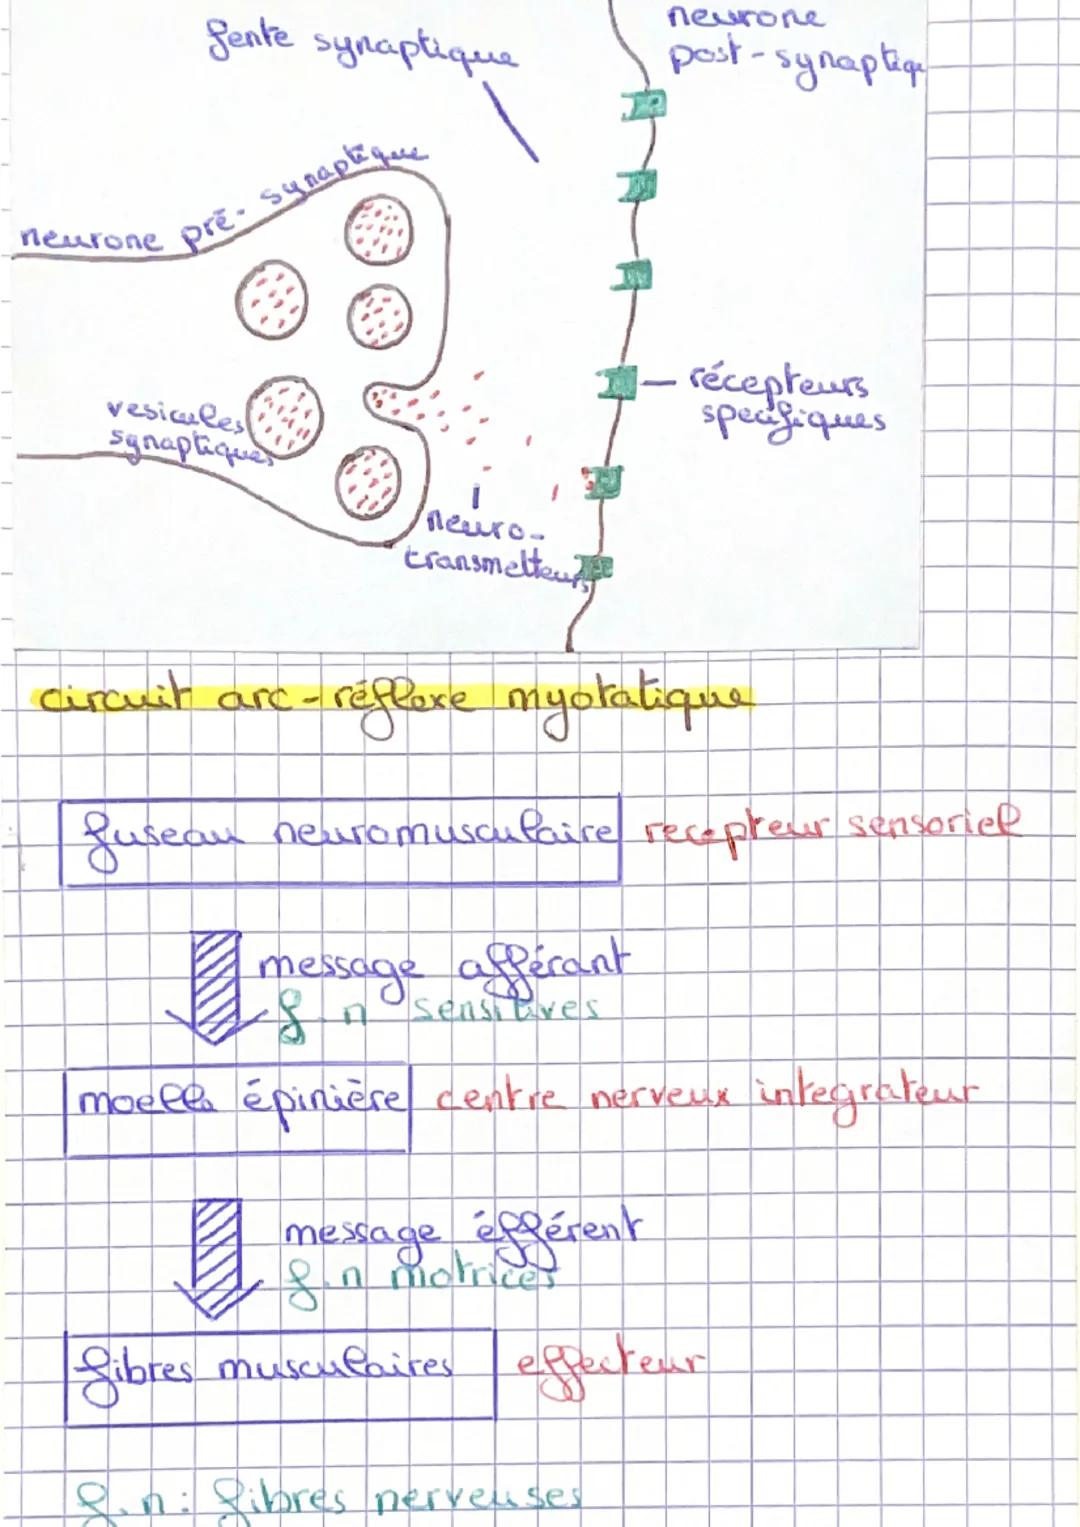 fente synaptique
neurone
post-synaptiqu
neurone pré-synaptique
vesicules
synaptiques
récepteurs
specifiques
neuro-
transmetteurs
circuit arc-réflexe myotatique
fuseau neuromusculaire recepteur sensoriel
message afférant
f.n sensitives
moelle épinière centre nerveux integrateur
message éfférent
f.n motrices
fibres musculaires effecteur
f.n: fibres nerveuses